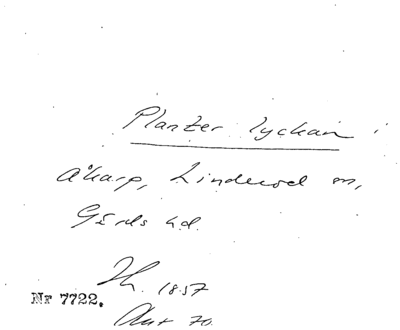 Planzer lyckan i
Åkarp, Linderöd sn,
Gärds hd.
Jh. 1857
Nr 7722.
Akt 70